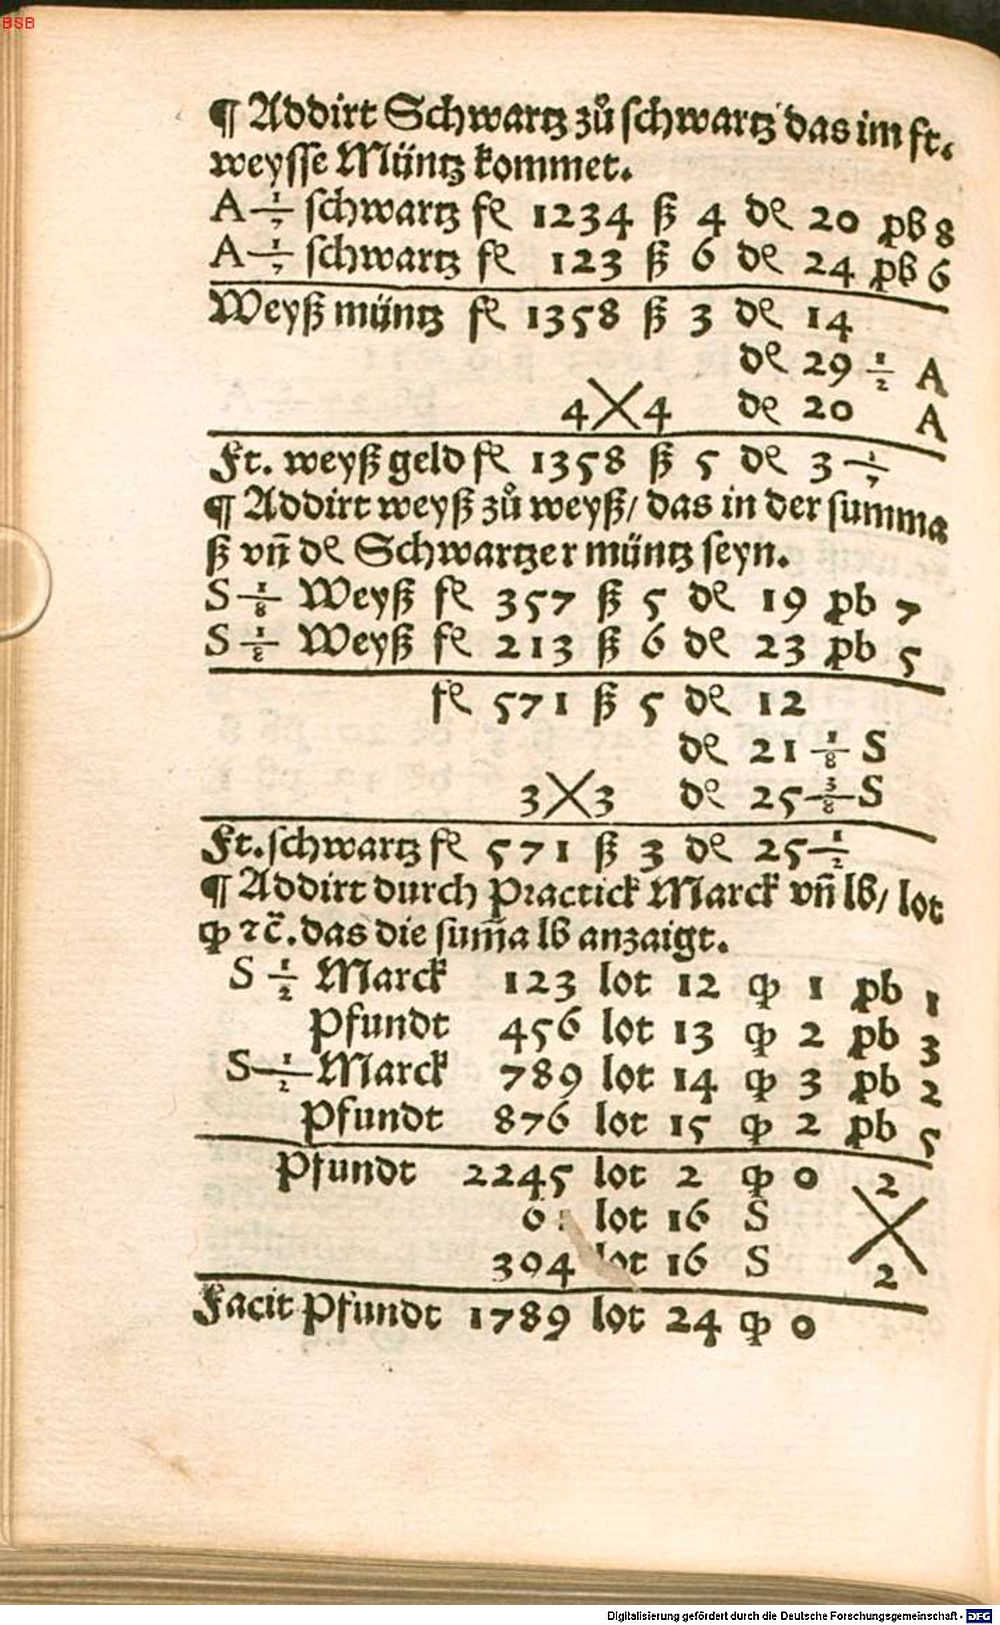 BSB
¶ Addirt Schwartz zů schwartz das im ft.
weysse Müntz kommet.
A 1/7 schwartz fl 1234 ß 4 dl 20 pb 8
A 1/7 schwartz fl 123 ß 6 dl 24 pb 6
Weyß müntz fl 1358 ß 3 dl 14
dl 29 1/2 A
4 X 4 dl 20 A
Ft. weyß geld fl 1358 ß 5 dl 3 1/7
¶ Addirt weyß zů weyß/ das in der summa
ß vñ dl Schwartzer müntz seyn.
S 1/8 Weyß fl 357 ß 5 dl 19 pb 7
S 1/8 Weyß fl 213 ß 6 dl 23 pb 5
fl 571 ß 5 dl 12
dl 21 1/8 S
3 X 3 dl 25 3/8 S
Ft. schwartz fl 571 ß 3 dl 25 1/2
¶ Addirt durch Practick Marck vñ lb/ lot
qp ꝛc̃. das die sum̃a lb anzaigt.
S 1/2 Marck 123 lot 12 qp 1 pb 1
Pfundt 456 lot 13 qp 2 pb 3
S 1/2 Marck 789 lot 14 qp 3 pb 2
Pfundt 876 lot 15 qp 2 pb 5
Pfundt 2245 lot 2 qp 0 2
lot 16 S X
394 lot 16 S 2
Facit Pfundt 1789 lot 24 qp 0
Digitalisierung gefördert durch die Deutsche Forschungsgemeinschaft - DFG